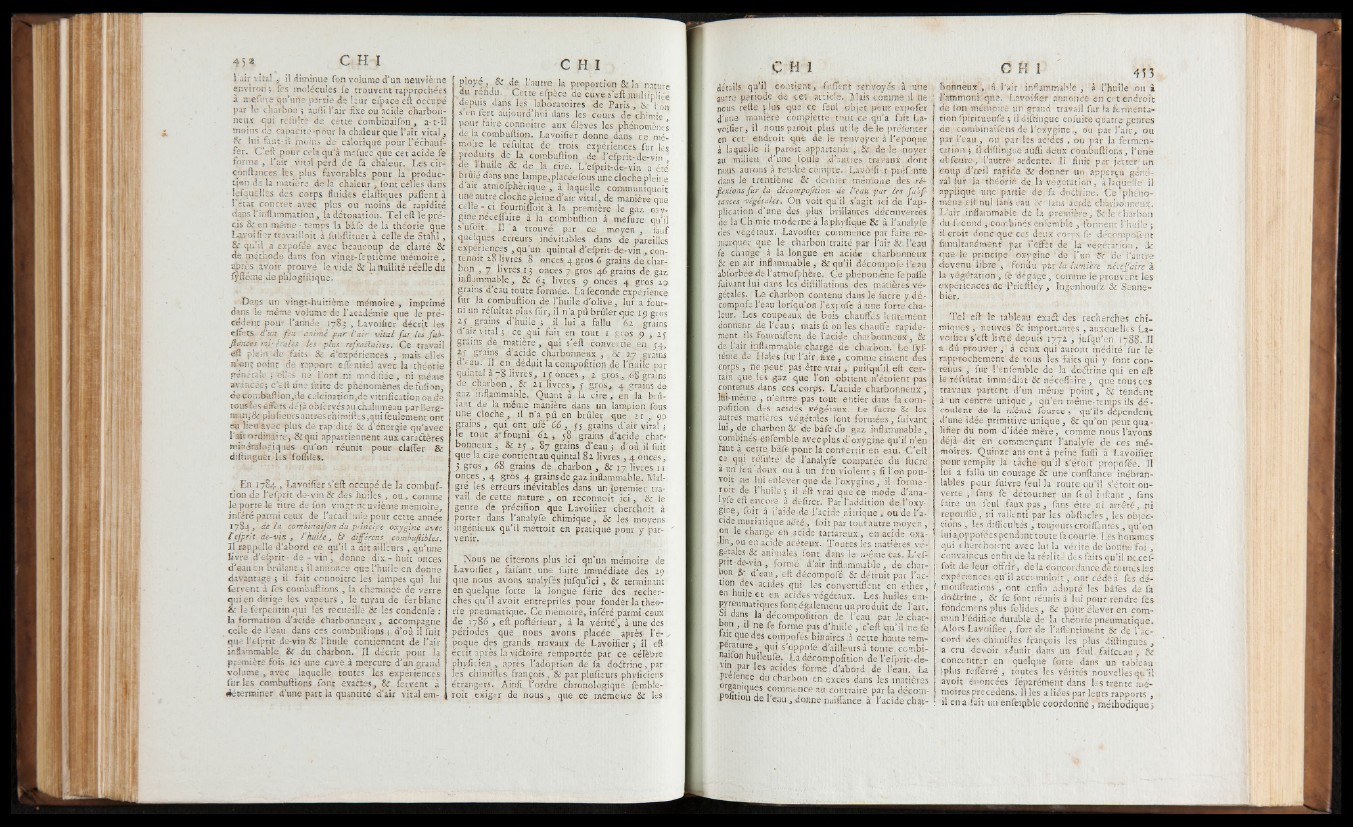 452 C H I
l'air vital, il diminue son volume d'un neuvième
environ; ses molécules se trouvent rapprochées
à mesure qu'une partie de leur espace est occupé
par le charbon; aussi l'air fixe ou acide charbon-
neux qui résulte de cette combinaison, a-t-il
moins de capacité pour la chaleur que l'air vital,
& lui faut-il moins de calorique pour l'échauf-
fer. C'est pour cela qu'à mesure que cet acide se
forme, l'air vital perd de sa chaleur. Les cir-
constances les plus favorables pour la produc-
tion de la matière de la chaleur, sont celles dans
lesquelles des corps fluides élastiques passent à
l'état concret avec plus ou moins de rapidité
dans l'inflammation, la détonation. Tel est le pré-
cis & en même-temps la base de la théorie que
Lavoisier travailloit à substituer à celle de Stahl,
& qu'il a exposée avec beaucoup de clarté &
de méthode dans son vingt-septième mémoire,
après avoir prouvé le vide & la nullité réelle du
système de phlogistique.
Dans un vingt-huitième mémoire, imprimé
dans le même volume de l'académie que le pré-
cédent pour l'année 1783, Lavoisier décrit les
effets d'un feu animé par l'air vital sur les sub-
stances minérales les plus réfractaires. Ce travail
est plein de faits & d'expériences, mais elles
n'ont point de rapport essentiel avec la théorie
générale; elles ne l'ont ni modifiée, ni même
avancée; c'est une suite de phénomènes de fusion,
de combustion, de calcination, de vitrification ou de
tous les effets déjà observés au chalumeau par Berg-
man & plusieurs autres chimistes, qui seulement ont
eu lieu avec plus de rapidité & d'énergie qu'avec
l'air ordinaire, & qui appartiennent aux caractères
minéralogiques qu'on réunit pour classer &
distinguer les fossiles.
En 1784, Lavoisier s'est occupé de la combus-
tion de l'esprit-de-vin & des huiles, ou, comme
le porte le titre de son vingt-neuvième mémoire,
inséré parmi ceux de l'académie pour cette année
1784, de la combinaison du principe oxygine avec
l'esprit-de-vin, l'huile, & différens combustibles.
Il rappelle d'abord ce qu'il a dit ailleurs, qu'une
livre d'esprit-de-vin, donne dix-huit onces
d'eau en brûlant; il annonce que l'huile en donne
davantage; il fait connoître les lampes qui lui
servent à ses combustions, la cheminée de verre
qui en dirige les vapeurs, le tuyau de fer blanc
& le serpentin qui les recueille & les condense:
la formation d'acide charbonneux, accompagne
celle de l'eau dans ces combustions; d'où il suit
que l'esprit-de-vin & l'huile contiennent de l'air
inflammable & du charbon. Il décrit pour la
première fois ici une cuve à mercure d'un grand
volume, avec laquelle toutes les expériences
sur les combustions sont exactes, & servent à
déterminer d'une part la quantité d'air vital em-
C H I
ployé, & de l'autre la proportion & la nature
du résidu. Cette espèce de cuve s'est multipliée
depuis dans les laboratoires de Paris, & l'on
s'en sert aujourd'hui dans les cours de chimie,
pour faire connoître aux élèves les phénomènes
de la combustion. Lavoisier donne dans ce mé-
moire le résultat de trois expériences sur les
produits de la combustion de l'esprit-de-vin,
de l'huile & de la cire. L'esprit-de-vin a été
brûlé dans une lampe, placée sous une cloche pleine
d'air atmosphérique, à laquelle communiquoit
une autre cloche pleine d'air vital, de manière que
celle-ci fournissoit à la première le gaz oxy-
gine nécessaire à la combustion à mesure qu'il
s'usoit. Il a trouvé par ce moyen, sauf
quelques erreurs inévitables dans de pareilles
expériences, qu'un quintal d'esprit-de-vin, con-
tenoit 28 livres 8 onces 4 gros 6 grains de char-
bon, 7 livres 13 onces 7 gros 46 grains de gaz
inflammable, & 63 livres 9 onces 4 gros 20
grains d'eau toute formée. La seconde expérience
sur la combustion de l'huile d'olive, lui a four-
ni un résultat plus sûr, il n'a pû brûler que 19 gros
25 grains d'huile; il lui a fallu 62 grains
d'air vital; ce qui fait en tout 1 gros 9, 25
grains de matière, qui s'est convertie en 54,
25 grains d'acide charbonneux, & 27 grains
d'eau. Il en déduit la composition de l'huile par
quintal à 78 livres, 15 onces, 2 gros, 68 grains
de charbon, & 21 livres, 5 gros, 4 grains de
gaz inflammable. Quant à la cire, en la brû-
lant de la même manière dans un lampion sous
une cloche, il n'a pû en brûler que 21, 90
grains, qui ont usé 66, 55 grains d'air vital;
le tout a fourni 62, 58 grains d'acide char-
bonneux, & 25, 87 grains d'eau; d'où il suit
que la cire contient au quintal 82 livres, 4 onces,
3 gros, 68 grains de charbon, & 17 livres 11
onces, 4 gros 4 grains de gaz inflammable. Mal-
gré les erreurs inévitables dans un premier tra-
vail de cette nature, on reconnoît ici, & le
genre de précision que Lavoisier cherchoit à
porter dans l'analyse chimique, & les moyens
ingénieux qu'il mettoit en pratique pour y par-
venir.
Nous ne citerons plus ici qu'un mémoire de
Lavoisier, faisant une suite immédiate des 29
que nous avons analysés jusqu'ici, & terminant
en quelque sorte la longue série des recher-
ches qu'il avoit entreprises pour fonder la théo-
rie pneumatique. Ce mémoire, inséré parmi ceux
de 1786, est postérieur, à la vérité, à une des
périodes que nous avons placée après l'é-
poque des grands travaux de Lavoisier; il est
écrit après la victoire remportée par ce célèbre
physicien, après l'adoption de sa doctrine, par
les chimistes françois, & par plusieurs physiciens
étrangers. Ainsi l'ordre chronologique semble-
roit exiger de nous, que ce mémoire & les
C H I
détails qu'il contient, fussent renvoyés à une
autre période de cet article. Mais comme il ne
nous reste plus que ce seul objet pour exposer
d'une manière complette tout ce qu'a fait La-
voisier, il nous paroît plus utile de le présenter
en cet endroit que de le renvoyer à l'époque
à laquelle il paroît appartenir, & de le noyer
au milieu d'une foule d'autres travaux dont
nous aurons à rendre compte. Lavoisier présente
dans le trentième & dernier mémoire des ré-
flexions sur la décomposition de l'eau par les subs-
tances végétales. On voit qu'il s'agit ici de l'ap-
plication d'une des plus brillantes découvertes
de la Chimie moderne à la physique & à l'analyse
des végétaux. Lavoisier commence par faire re-
marquer que le charbon traité par l'air & l'eau
se change à la longue en acide charbonneux
& en air inflammable, & qu'il décompose l'eau
absorbée de l'atmosphère. Ce phénomène se passe
suivant lui dans les distillations des matières vé-
gétales. Le charbon contenu dans le sucre y dé-
compose l'eau lorsqu'on l'expose à une forte cha-
leur. Les coupeaux de bois chauffés lentement
donnent de l'eau; mais si on les chauffe rapide-
ment ils fournissent de l'acide charbonneux, &
de l'air inflammable chargé de charbon. Le sys-
tème de Hales sur l'air fixe, comme ciment des
corps, ne peut pas être vrai, puisqu'il est cer-
tain que les gaz que l'on obtient n'étoient pas
contenus dans ces corps. L'acide charbonneux,
lui-même, n'entre pas tout entier dans la com-
position des acides végétaux. Le sucre & les
autres matières végétales sont formées, suivant
lui, de charbon & de base du gaz inflammable,
combinés ensemble avec plus d'oxygine qu'il n'en
faut à cette base pour la convertir en eau. C'est
ce qui résulte de l'analyse comparée du sucre
à un feu doux ou à un feu violent; si l'on pou-
voit ne lui enlever que de l'oxygine, il forme-
roit de l'huile; il est vrai que ce mode d'ana-
lyse est encore à desirer. Par l'addition de l'oxy-
gine, soit à l'aide de l'acide nitrique, ou de l'a-
cide muriatique aéré, soit par tout autre moyen,
on le change en acide tartareux, en acide oxa-
lin, ou en acide acéteux. Toutes les matières vé-
gétales & animales sont dans le même cas. L'es-
prit-de-vin, formé d'air inflammable, de char-
bon & d'eau, est décomposé & détruit par l'ac-
tion des acides qui les convertissent en éther,
en huile et en acides végétaux. Les huiles em-
pyreumatiques sont également un produit de l'art.
Si dans la décomposition de l'eau par le char-
bon, il ne se forme pas d'huile, c'est qu'il ne se
fait que des composés binaires à cette haute tem-
pérature, qui s'oppose d'ailleurs à toute combi-
naison huileuse. La décomposition de l'esprit-de-
vin par les acides forme d'abord de l'eau. La
présence du charbon en excès dans les matières
organiques commence au contraire par la décom-
position de l'eau, donne naissance à l'acide char-
C H I 453
bonneux, à l'air inflammable, à l'huile ou à
l'ammoniaque. Lavoisier annonce en cet endroit
de son mémoire un grand travail sur la fermenta-
tion spiritueuse; il distingue ensuite quatre genres
de combinaisons de l'oxygine, ou par l'air, ou
par l'eau, ou par les acides, ou par la fermen-
tation; il distingue aussi deux combustions, l'une
obscure, l'autre ardente. Il finit par jetter un
coup d'œil rapide & donner un apperçu géné-
ral sur la théorie de la végétation, à laquelle il
applique une partie de sa doctrine. Ce phéno-
mène est nul sans eau & sans acide charbonneux.
L'air inflammable de la première, & le charbon
du second, combinés ensemble, forment l'huile;
il croit donc que cet deux corps se décomposent
simultanément par l'effet de la végétation, &
que le principe oxygine de l'un & de l'autre
devenu libre, fondu par la lumière nécessaire à
la végétation, se dégage, comme le prouvent les
expériences de Priestley, Ingenhousz & Senne-
bier.
Tel est le tableau exact des recherches chi-
miques, neuves & importantes, auxquelles La-
voisier s'est livré depuis 1772, jusqu'en 1788. Il
a dû prouver, à ceux qui auront médité sur le
rapprochement de tous les faits qui y sont con-
tenus, sur l'ensemble de la doctrine qui en est
le résultat immédiat & nécessaire, que tous ces
travaux partent d'un même point, & tendent
à un centre unique, qu'en même-temps ils dé-
coulent de la même source, qu'ils dépendent
d'une idée primitive unique, & qu'on peut qua-
lifier du nom d'idée mère, comme nous l'avons
déjà dit en commençant l'analyse de ces mé-
moires. Quinze ans ont à peine suffi à Lavoisier
pour remplir la tâche qu'il s'étoit proposée. Il
lui a fallu un courage & une constance inébran-
lables pour suivre seul la route qu'il s'étoit ou-
verte, sans se détourner un seul instant, sans
faire un seul faux pas, sans être ni arrêté, ni
repoussé, ni rallenti par les obstacles, les objec-
tions, les difficultés, toujours croissantes, qu'on
lui a opposées pendant toute sa course. Les hommes
qui cherchoient avec lui la vérité de bonne foi,
convaincus enfin de la réalité des faits qu'il ne ces-
soit de leur offrir, de la concordance de toutes les
expériences qu'il accumuloit, ont cédé à ses dé-
monstrations, ont enfin adopté les bases de sa
doctrine, & se sont réunis à lui pour rendre ses
fondemens plus solides, & pour élever en com-
mun l'édifice durable de la théorie pneumatique.
Alors Lavoisier, fort de l'assentiment & de l'ac-
cord des chimistes françois les plus distingués,
a cru devoir réunir dans un seul faisceau, &
concentrer en quelque sorte dans un tableau
plus resserré, toutes les vérités nouvelles qu'il
avoit énoncées séparément dans les trente mé-
moires précédens. Il les a liées par leurs rapports,
il en a fait un ensemble coordonné, méthodique;